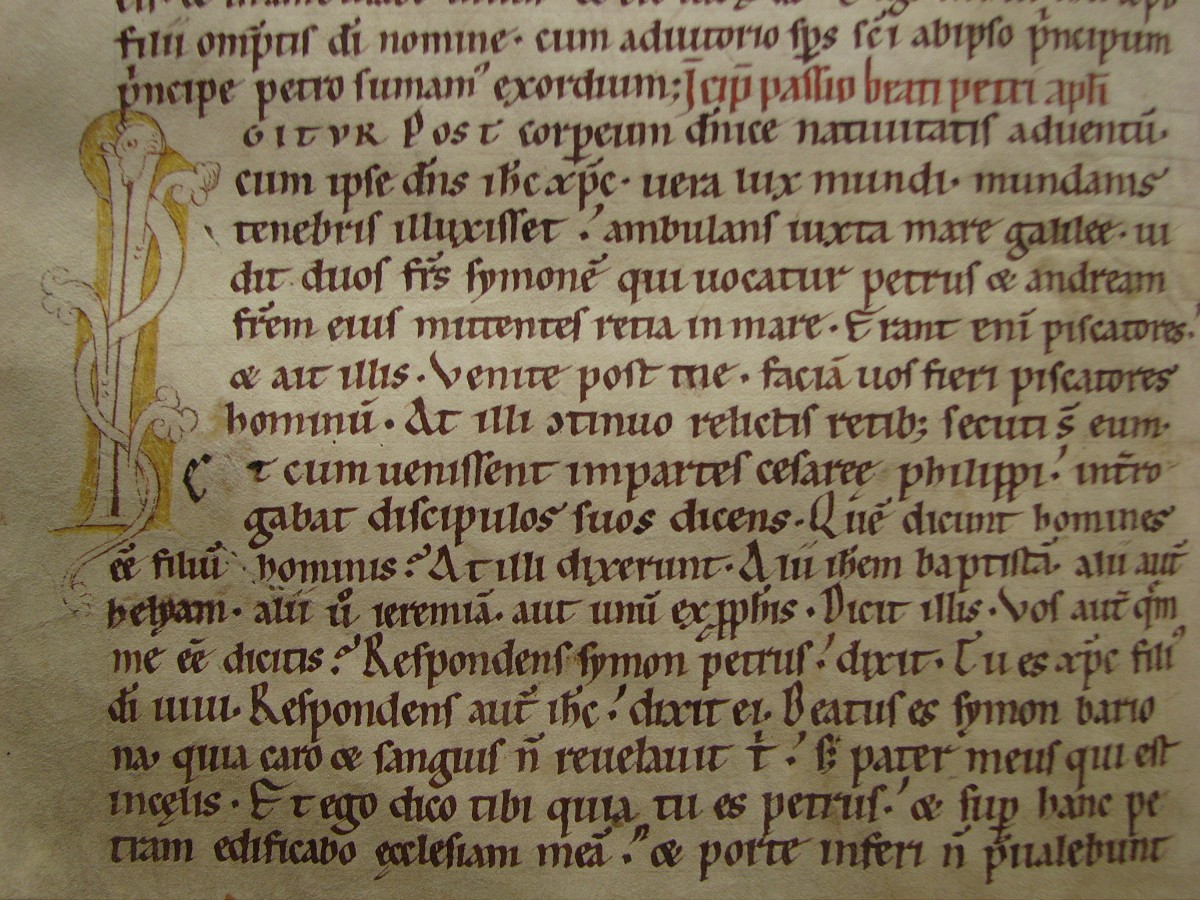 filii omp̅tis di̅ nomine· cum adiutorio sp̅s sc̅i abipso p̅ncipum
p̅ncipe petro sumam᾽ exordium; Jcip̅ passio beati petri apl̅i
GITVR Post corpeum dn̅ice natiuitatis aduentu̅·
cum ipse dn̅s ih̅c xp̅c· uera lux mundi· mundanis
tenebris illuxisset ambulans iuxta mare galilee· ui
dit duos fr̅s symone̅ qui uocatur petrus & andream
fr̅em eius mittentes retia in mare· Erant eni̅ piscatores
& ait illis· Venite post me· facia̅ uos fieri piscatores
hominu̅· At illi ɔtinuo relictis retib; secuti s̅ eum·
Et cum uenissent impartes cesaręę philippi intr̅o
gabat discipulos suos dicens· Que̅ dicunt homines
ee̅ filiu̅ hominis? At illi dixerunt· Alii ioh̅em baptista̅· alii aut̅
helyam· alii u̅o ieremia̅· aut unu̅ ex pp̅h̅is· Dicit illis· Vos aut̅ q̅m
me ee̅ dicitis? Respondens symon petrus dixit· Tu es xp̅c fili᾽
di̅ uiui· Respondens aut̅ ih̅c dixit ei· Beatus es symon bario
na, quia caro & sanguis n̅ reuelauit t̅ s; pater meus qui est
incęlis· Et ego dico tibi quia tu es petrus & sup̅ hanc pe
tram edificabo ęcclesiam mea̅ & porte inferi n̅ p̅ualebunt